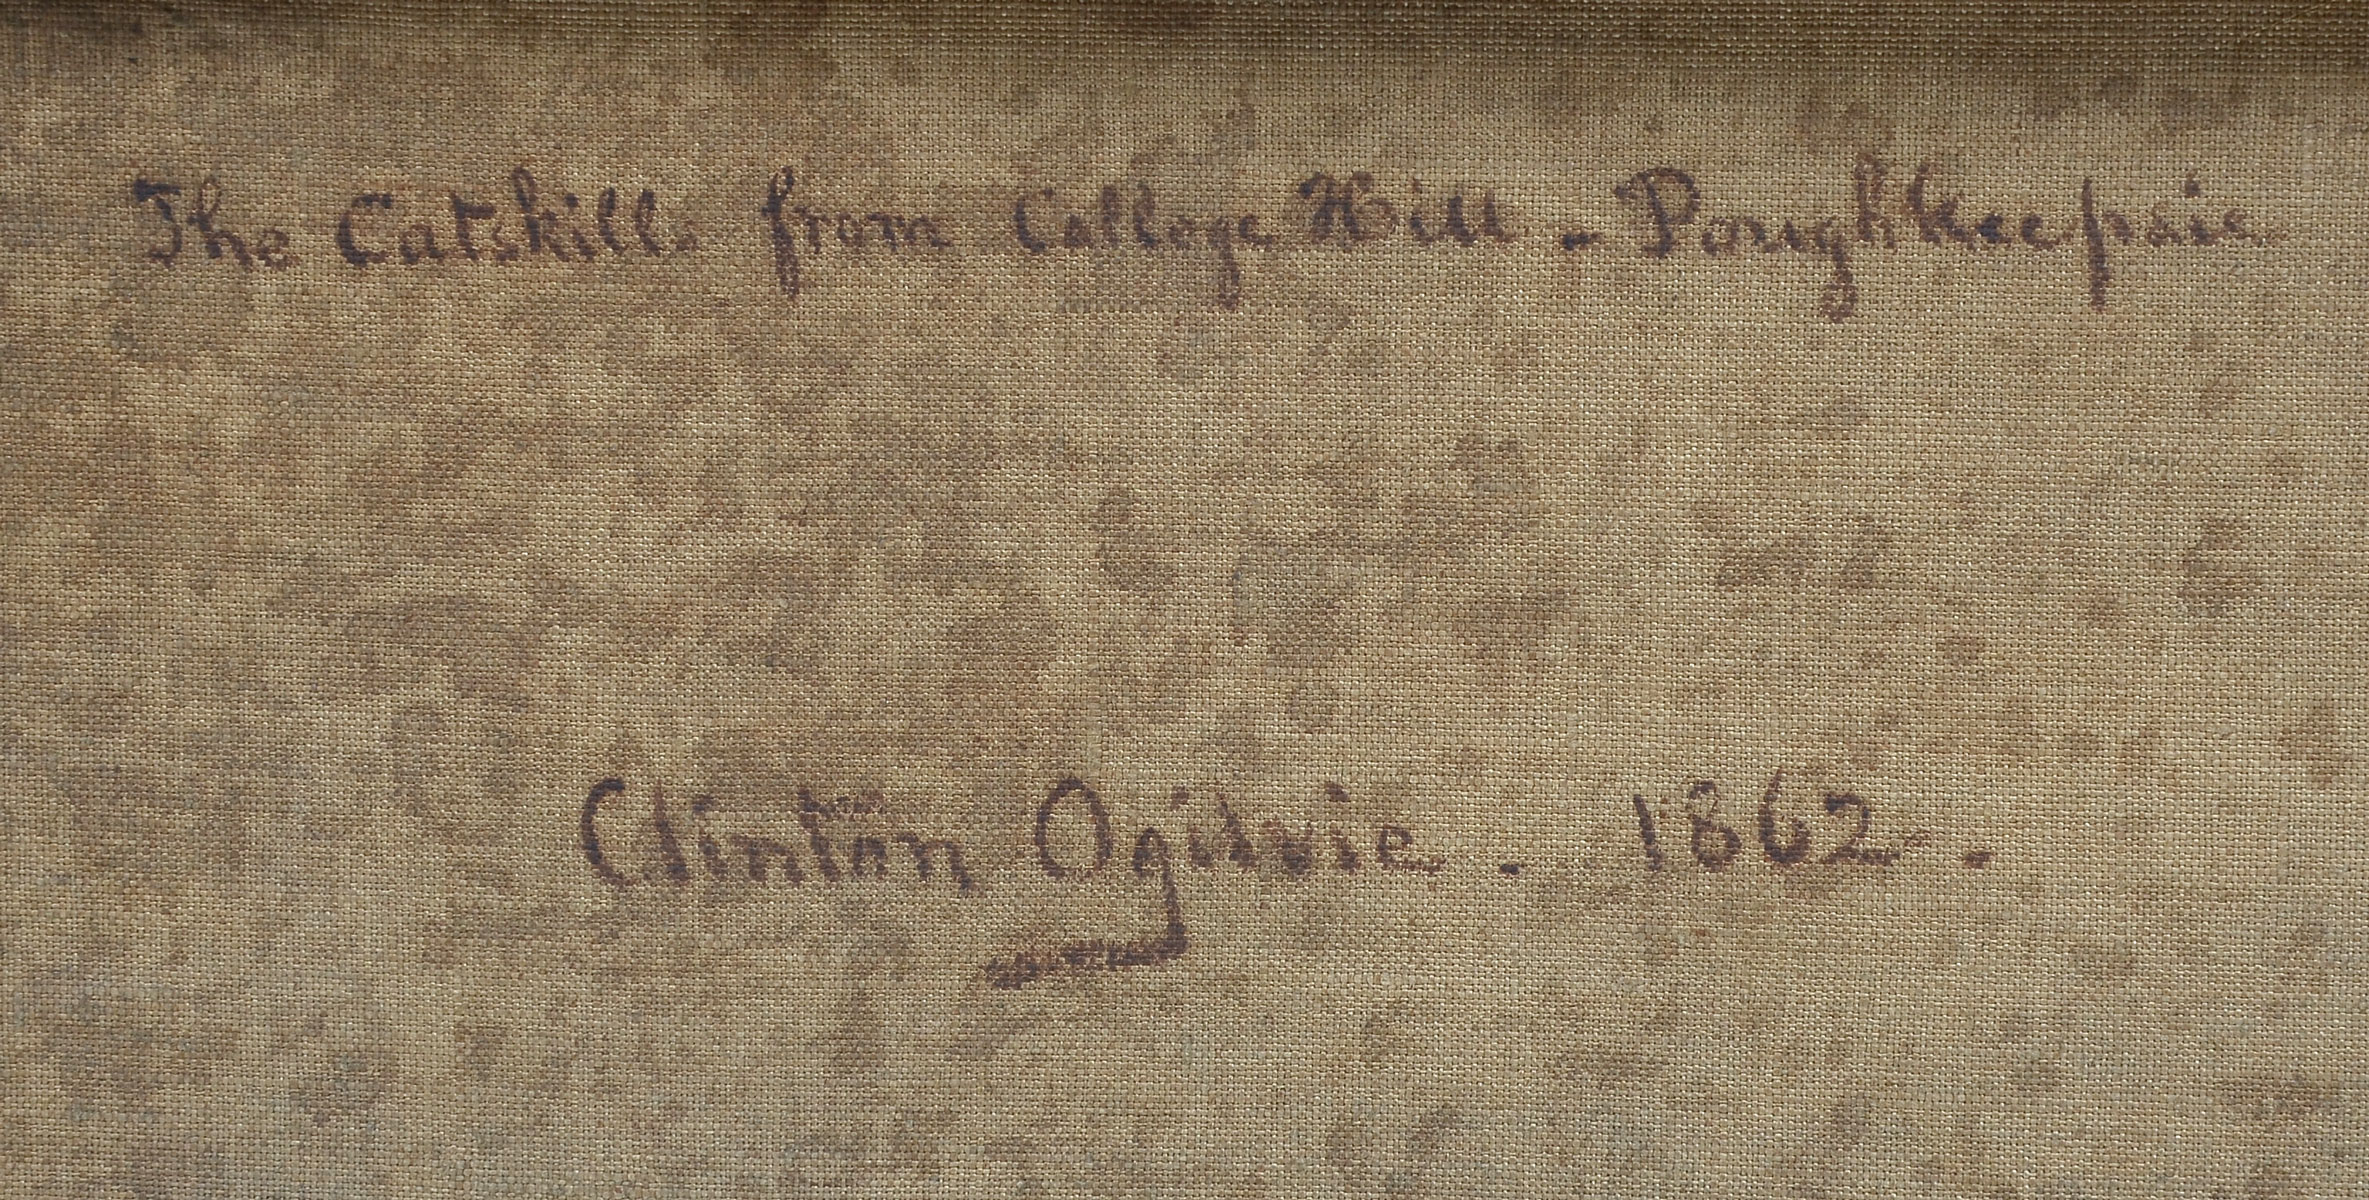 The Catskills from College Hill - Poughkeepsie
Clinton Ogilvie. 1862.